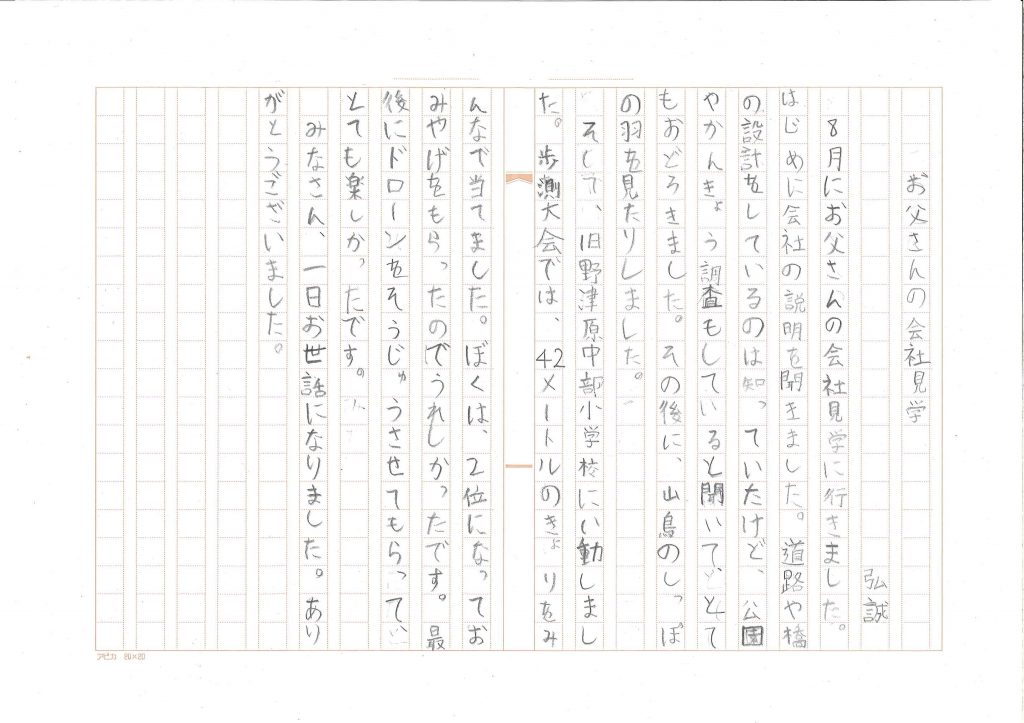 お父さんの会社見学
弘誠
8月にお父さんの会社見学に行きました。
はじめに会社の説明を聞きました。道路や橋
の設計をしているのは知っていたけど、公園
やかんきょう調査もしていると聞いて、とて
もおどろきました。その後に、山鳥のしっぽ
の羽を見たりしました。
そして、旧野津原中部小学校にい動しまし
た。歩測大会では、42メートルのきょりをみ
んなで当てました。ぼくは、2位になってお
みやげをもらったのでうれしかったです。最
後にドローンをそうじゅうさせてもらって、
とても楽しかったです。
みなさん、一日お世話になりました。あり
がとうございました。
アピカ 20×20